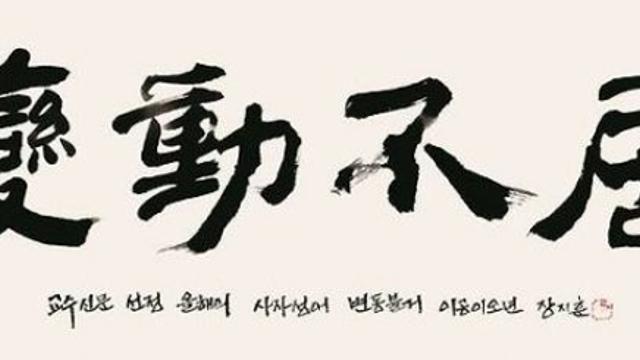 變動不居
교수신문 선정 올해의 사자성어 변동불거 이용이소년 장지훈